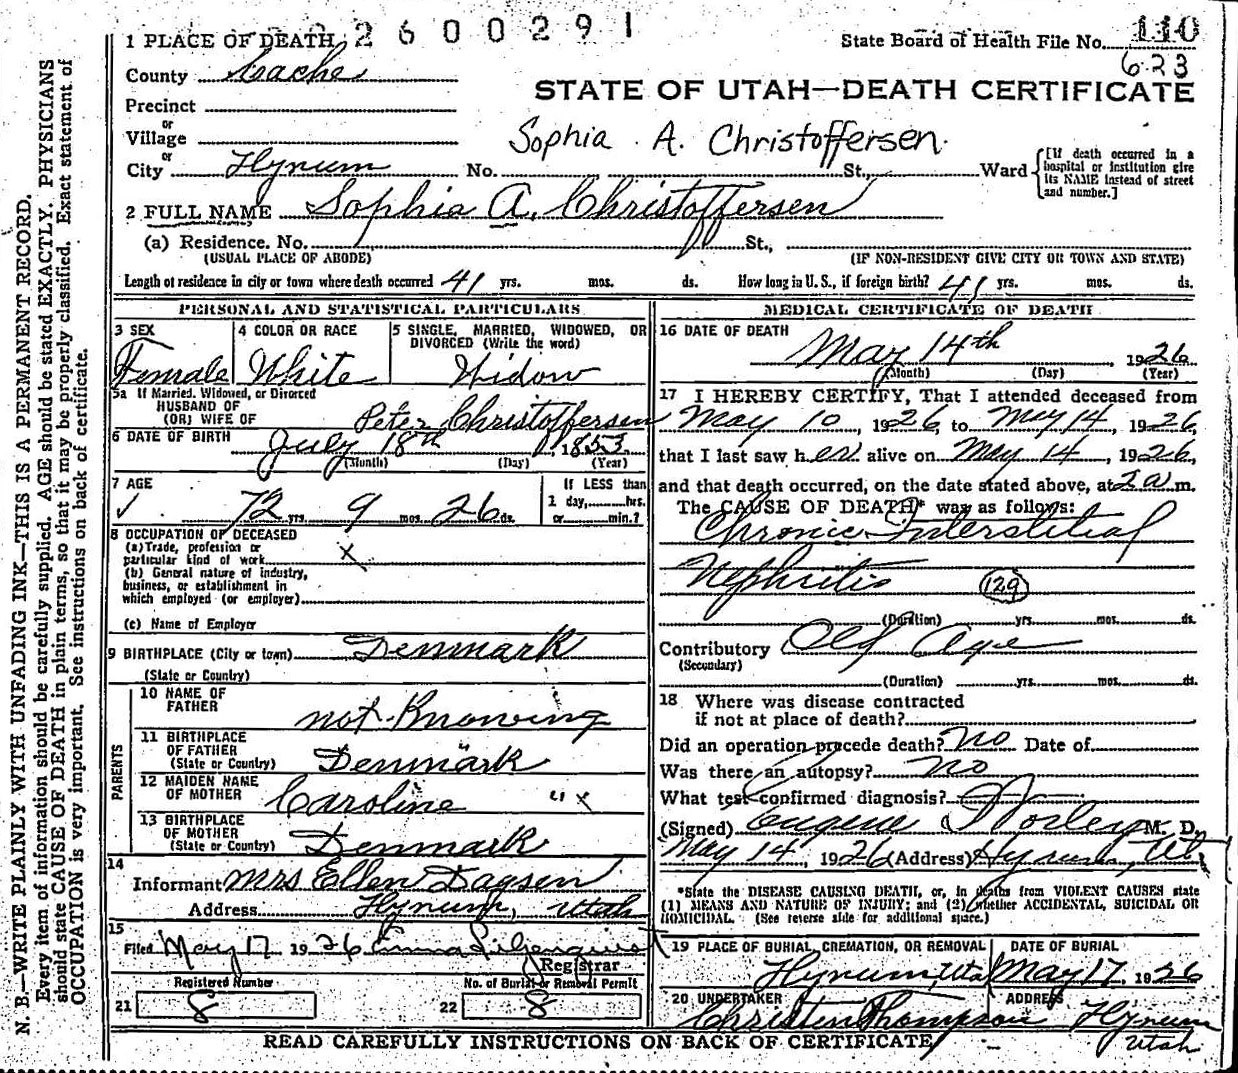 2600291
1 PLACE OF DEATH
State Board of Health File No. 110
623
County Cache
STATE OF UTAH—DEATH CERTIFICATE
Precinct
or
Village
Sophia A. Christoffersen
or
City Hyrum No. St., Ward
[If death occurred in a hospital or institution give its NAME instead of street and number.]
2 FULL NAME Sophia A. Christoffersen
(a) Residence. No. St.,
(USUAL PLACE OF ABODE) (IF NON-RESIDENT GIVE CITY OR TOWN AND STATE)
Length of residence in city or town where death occurred 41 yrs. mos. ds. How long in U. S., if foreign birth? 41 yrs. mos. ds.
PERSONAL AND STATISTICAL PARTICULARS
3 SEX
Female
4 COLOR OR RACE
White
5 SINGLE, MARRIED, WIDOWED, OR
DIVORCED (Write the word)
Widow
5a If Married, Widowed, or Divorced
HUSBAND OF
(OR) WIFE OF Peter Christoffersen
6 DATE OF BIRTH July 18th 1853
(Month) (Day) (Year)
7 AGE
72 yrs. 9 mos. 26 ds.
If LESS than
1 day,......hrs.
or......min.?
8 OCCUPATION OF DECEASED
(a) Trade, profession or
particular kind of work x
(b) General nature of industry,
business, or establishment in
which employed (or employer)
(c) Name of Employer
9 BIRTHPLACE (City or town) Denmark
(State or Country)
PARENTS
10 NAME OF
FATHER not Knowing
11 BIRTHPLACE
OF FATHER
(State or Country) Denmark
12 MAIDEN NAME
OF MOTHER Caroline " x
13 BIRTHPLACE
OF MOTHER
(State or Country) Denmark
14
Informant Mrs Ellen
Address Hyrum, Utah
15
Filed May 17 1926 Emma
Registrar
Registered Number No. of Burial or Removal Permit
21 8 22 8
MEDICAL CERTIFICATE OF DEATH
16 DATE OF DEATH
May 14th, 1926
(Month) (Day) (Year)
17 I HEREBY CERTIFY, That I attended deceased from
May 10, 1926, to May 14, 1926,
that I last saw her alive on May 14, 1926,
and that death occurred, on the date stated above, at 2 a m.
The CAUSE OF DEATH* was as follows:
Chronic Interstitial
Nephritis 129
(Duration) yrs. mos. ds.
Contributory Old Age
(Secondary)
(Duration) yrs. mos. ds.
18 Where was disease contracted
if not at place of death?
Did an operation precede death? No Date of
Was there an autopsy? No
What test confirmed diagnosis?
(Signed) Eugene Worley M. D.
May 14, 1926 (Address) Hyrum, Ut
*State the DISEASE CAUSING DEATH, or, in deaths from VIOLENT CAUSES state
(1) MEANS AND NATURE OF INJURY; and (2) whether ACCIDENTAL, SUICIDAL OR
HOMICIDAL. (See reverse side for additional space.)
19 PLACE OF BURIAL, CREMATION, OR REMOVAL
Hyrum, Utah
DATE OF BURIAL
May 17, 1926
20 UNDERTAKER
Christen Thompson
ADDRESS
Hyrum
Utah
READ CAREFULLY INSTRUCTIONS ON BACK OF CERTIFICATE
N. B.—WRITE PLAINLY WITH UNFADING INK—THIS IS A PERMANENT RECORD.
Every item of information should be carefully supplied. AGE should be stated EXACTLY. PHYSICIANS
should state CAUSE OF DEATH in plain terms, so that it may be properly classified. Exact statement of
OCCUPATION is very important. See instructions on back of certificate.